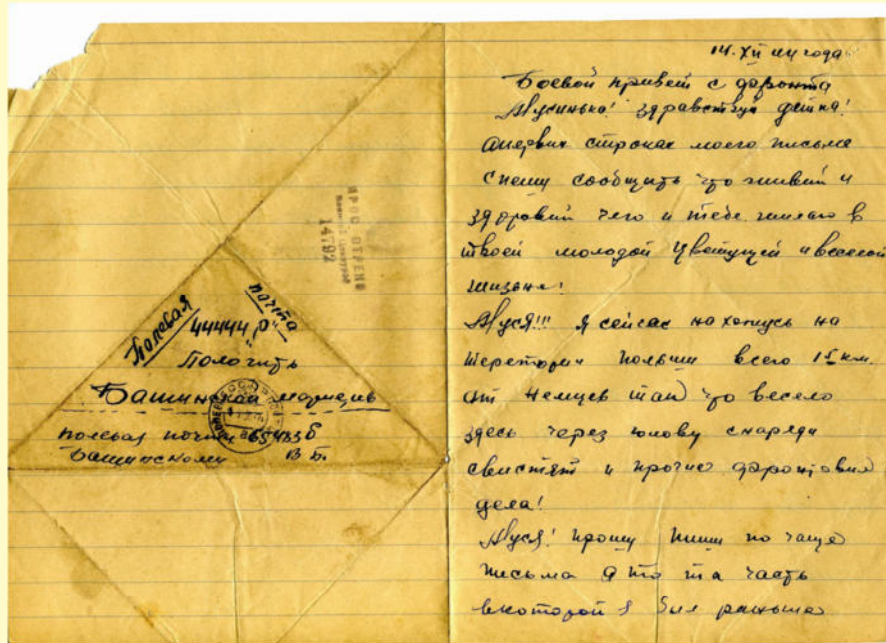 Полевая почта
44444 "р"
Получить
полевая почта 65433 б
Башинскому В Б.
ПРОСМОТРЕНО
Военной Цензурой
14792
14. XII 44 года
Боевой привет с фронта
Мусинька! здравствуй детка!
спешу сообщить что живий и
здоровий чего и тебе желаю в
твоей молодой цветущей и веселой
жизни!
Муся!!! Я сейчас нахожусь на
теретории Польши всего 15 км.
от немцев так что весело
здесь через голову снаряди
свистят и прочие фронтовие
дела!
Муся! прошу пиши по чаще
письма а то та часть
в которой я бил раньше